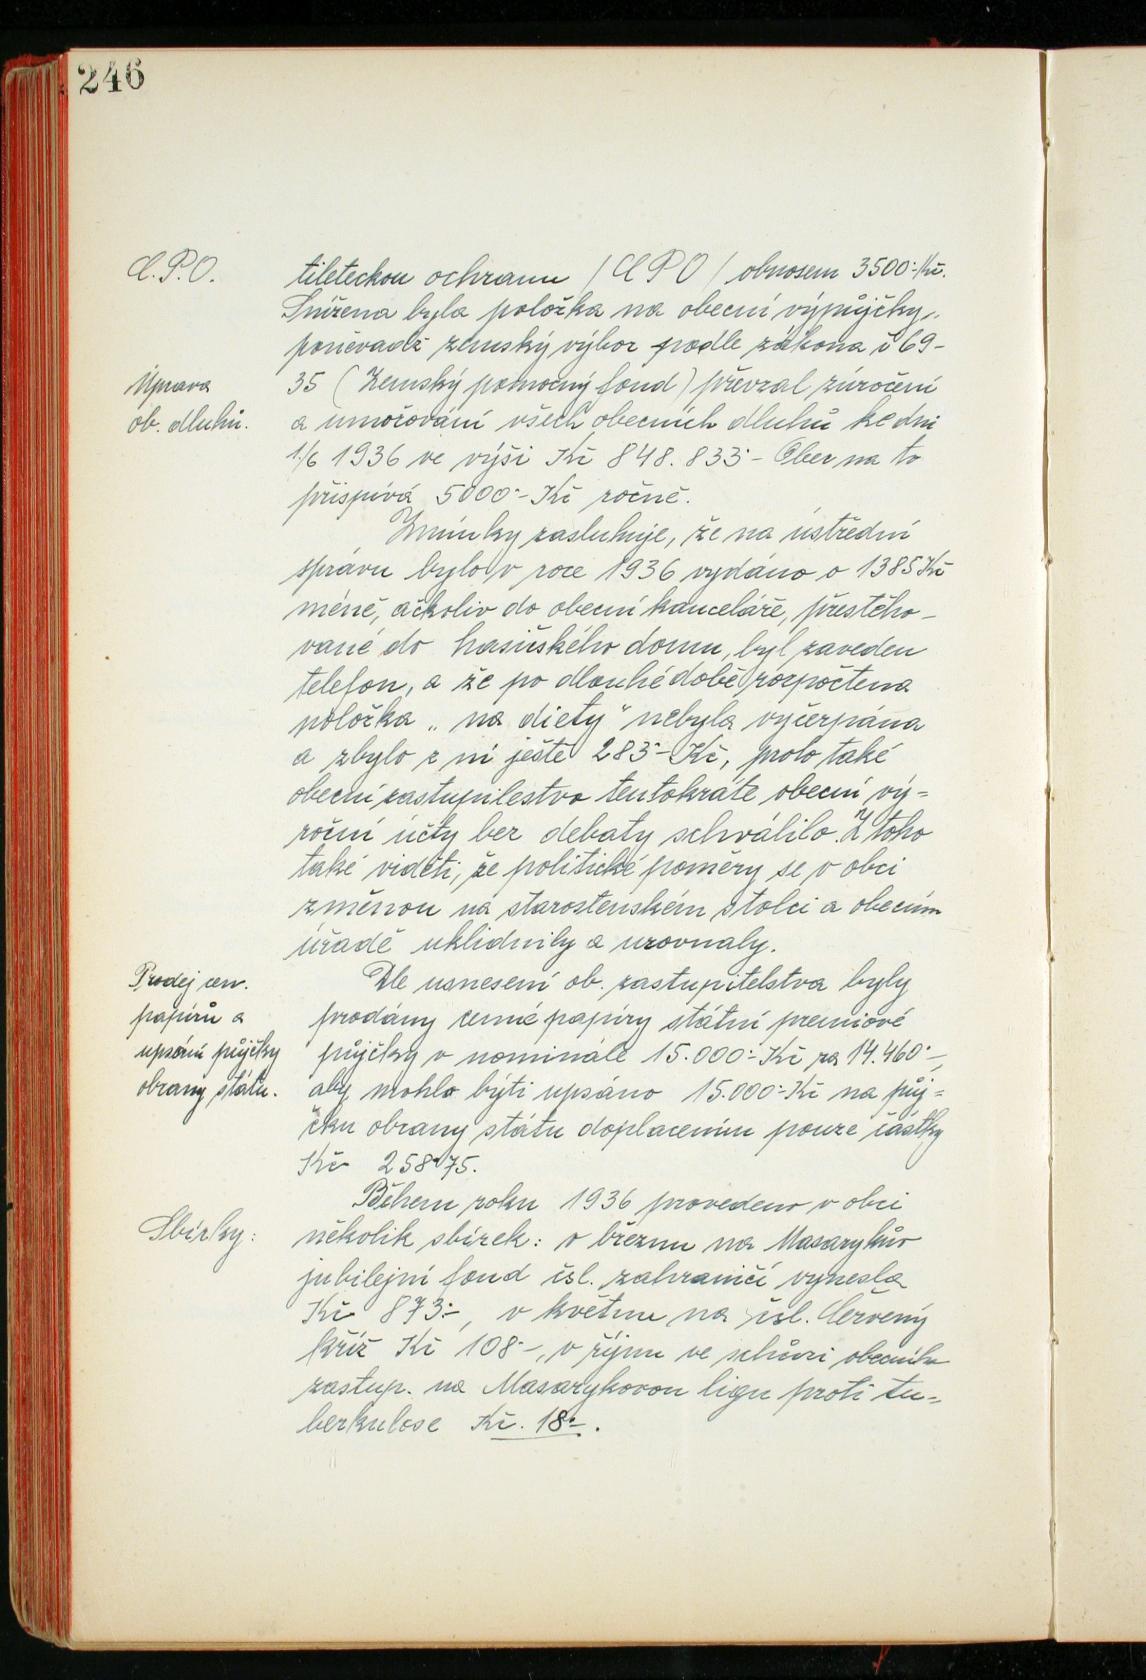 246
C.P.O.
tileteckou ochranu / C P O / obnosem 3500·-Kč.
Snížena byla položka na obecní výpůjčky,
poněvadž zemský výbor podle zákona č 69-
Úprava
35 (Zemský pomocný fond) převzal zúročení
ob. dluhů.
a umořování všech obecních dluhů ke dni
1/6 1936 ve výši Kč 848.833·- Obec na to
přispívá 5000·- Kč ročně.
Zmínky zasluhuje, že na ústřední
správu bylo v roce 1936 vydáno o 1385 Kč
méně, ačkoliv do obecní kanceláře, přestěho-
vané do hasičského domu, byl zaveden
telefon, a že po dlouhé době rozpočtena
položka „na diety" nebyla vyčerpána
a zbylo z ní ještě 283·- Kč, proto také
obecní zastupilestvo tentokráte obecní vý-
roční účty bez debaty schválilo. Z toho
také viděti, že politické poměry se v obci
změnou na starostenském stolci a obecním
úřadě uklidnily a urovnaly.
Prodej cen.
papírů a
upsání půjčky
obrany státu.
Dle usnesení ob. zastupitelstva byly
prodány cenné papíry státní premiové
půjčky v nominále 15.000·- Kč za 14.460·-,
aby mohlo býti upsáno 15.000·- Kč na půj-
čku obrany státu doplacením pouze částky
Kč 258·75.
Během roku 1936 provedeno v obci
Sbírky:
několik sbírek: v březnu na Masarykův
jubilejní fond čsl. zahraničí vynesla
Kč 873·-, v květnu na čsl. Červený
kříž Kč 108·-, v říjnu ve schůzi obecního
zastup. na Masarykovou ligu proti tu-
berkulose Kč. 18·-.